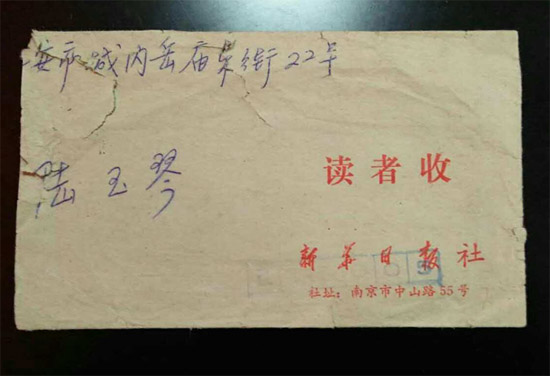 安市城内岳庙东街22号
陆玉琴
读者收
新华日报社
社址：南京市中山路55号